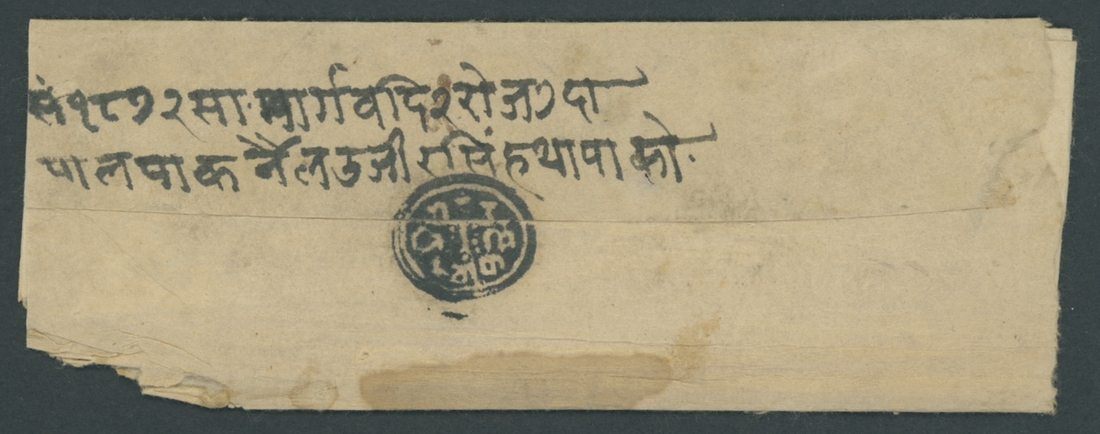 सं १८७२ साल मार्ग वदि २ रोज ७ दा
पाल्पा कर्नैल उजीरसिंह थापाको